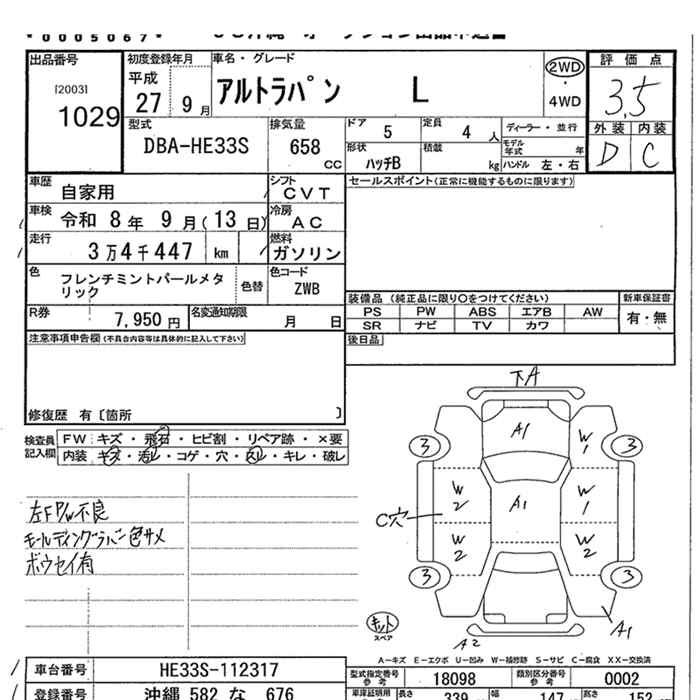 0005067
出品番号
[2003]
1029
初度登録年月
平成
27 9月
車名・グレード
アルトラパン L
2WD
・
4WD
評価点
3.5
外装 内装
D C
型式
DBA-HE33S
排気量
658
CC
ドア
5
定員
4 人
ディーラー・並行
形状
ハッチB
積載
kg
モデル年式
年
ハンドル 左・右
車歴
自家用
シフト
CVT
セールスポイント(正常に機能するものに限ります)
車検
令和 8年 9月(13日)
冷房
AC
走行
3万4千447 km
燃料
ガソリン
色
フレンチミントパールメタリック
色替
色コード
ZWB
装備品 (純正品に限り〇をつけてください)
新車保証書
PS PW ABS エアB AW
有・無
SR ナビ TV カワ
R券
7,950円
名変通知期限
月 日
後日品
注意事項申告欄(不具合内容等は具体的に記入して下さい)
修復歴 有〔箇所 〕
検査員
記入欄
FW: キズ・飛石・ヒビ割・リペア跡・×要
内装: キズ・汚レ・コゲ・穴・スレ・キレ・破レ
左FP/W不良
モールディングラバー色サメ
ボウセイ有
下A
A1
W1
3
3
W2
A1
W1
C穴
W2
W2
3
3
キット
スペア
A2
A1
A-キズ E-エクボ U-凹み W-補修跡 S-サビ C-腐食 XX-交換済
車台番号
HE33S-112317
登録番号
沖縄 582 な 676
型式指定番号
参考
18098
類別区分番号
参考
0002
車庫証明用
長さ 339
幅 147
高さ 152